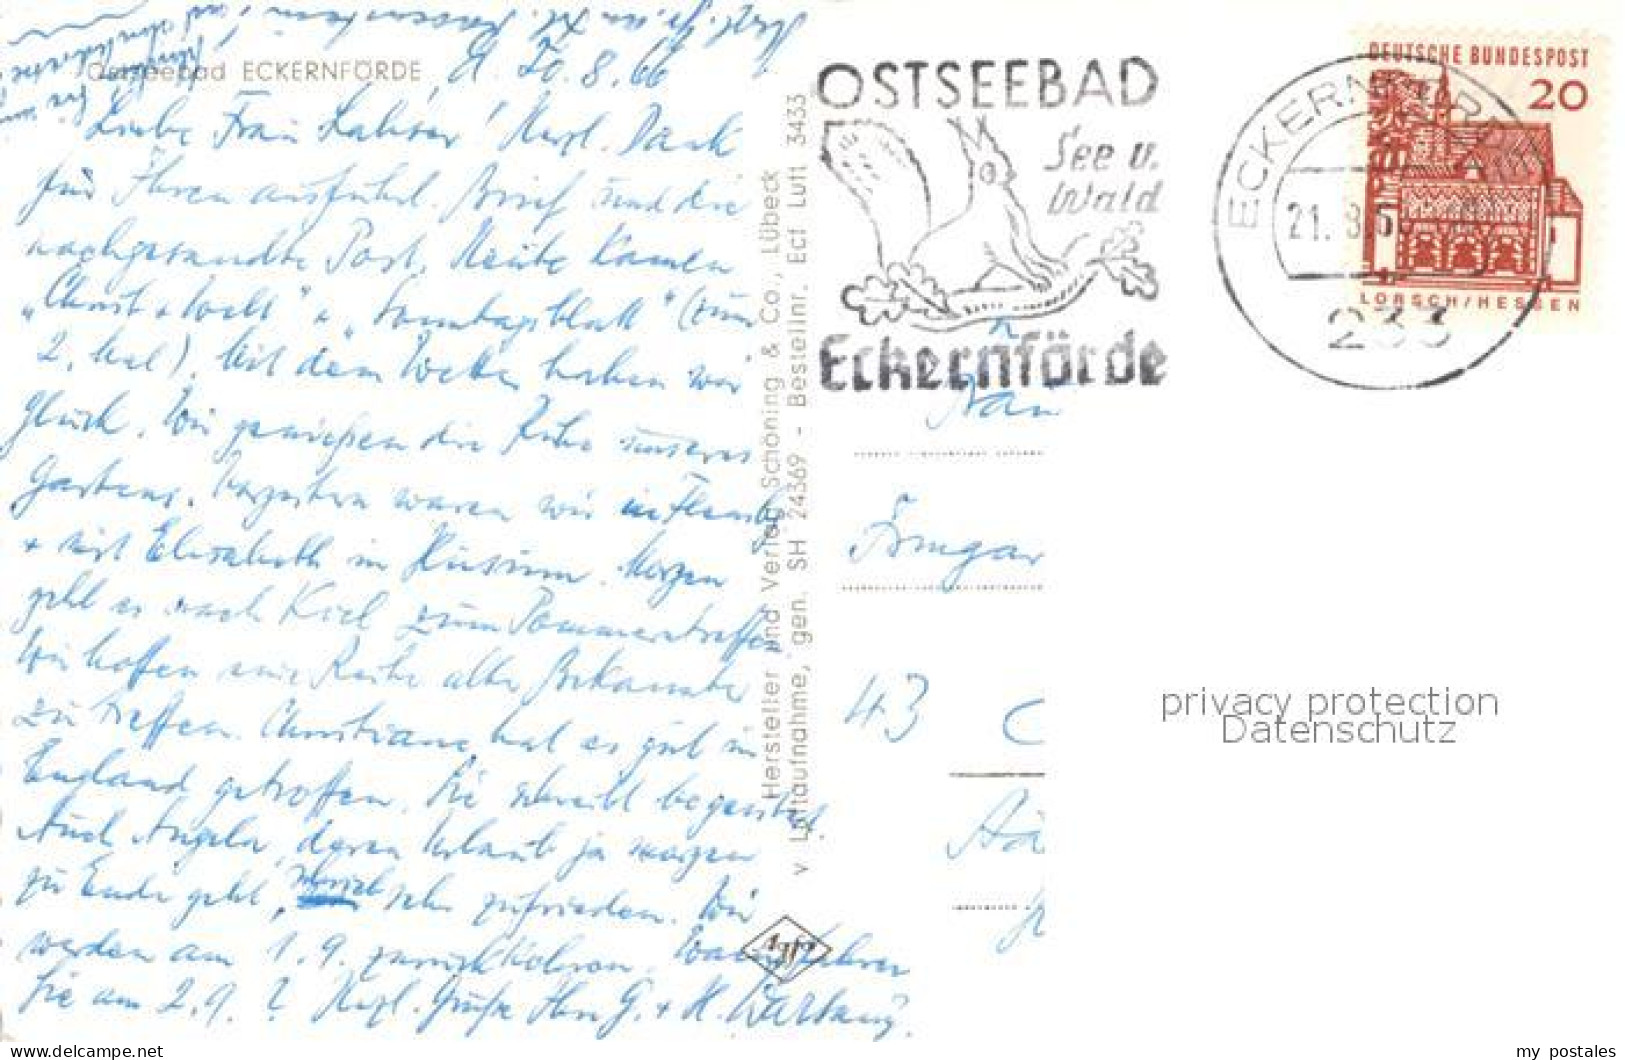 Ostseebad ECKERNFÖRDE, d. 20.8.66
Liebe Frau! Herzl. Dank
für Ihren ausführl. Brief und die
nachgesandte Post. Heute kamen
„Christ + Welt" u. „Sonntagsblatt" (zum
2. Mal). Mit dem Wetter haben wir
Glück. Wir genießen die Ruhe unseres
Gartens. Vorgestern waren wir in Flensbg
+ mit Elisabeth in Husum. Morgen
geht es nach Kiel zum Pommerntreffen.
Wir hoffen eine Reihe alte Bekannte
zu treffen. Christiane hat es gut in
England getroffen. Sie schreibt begeistert.
Auch Angela, deren Urlaub ja morgen
zu Ende geht, schrieb sehr zufrieden. Wir
werden am 1.9. zurückkehren. Wann kehren
Sie am 2.9.? Herzl. Grüße Ihre G. + H.
Hersteller und Verlag Schöning & Co., Lübeck
v Luftaufnahme, gen. SH 24369 - Bestellnr. Ecf Luft 3433
Agfa
OSTSEEBAD
See u.
Wald
Eckernförde
ECKERNFÖRDE
21. 8.
233
DEUTSCHE BUNDESPOST
20
LORSCH/HESSEN
Irmgar
43
privacy protection
Datenschutz
my postales
www.delcampe.net